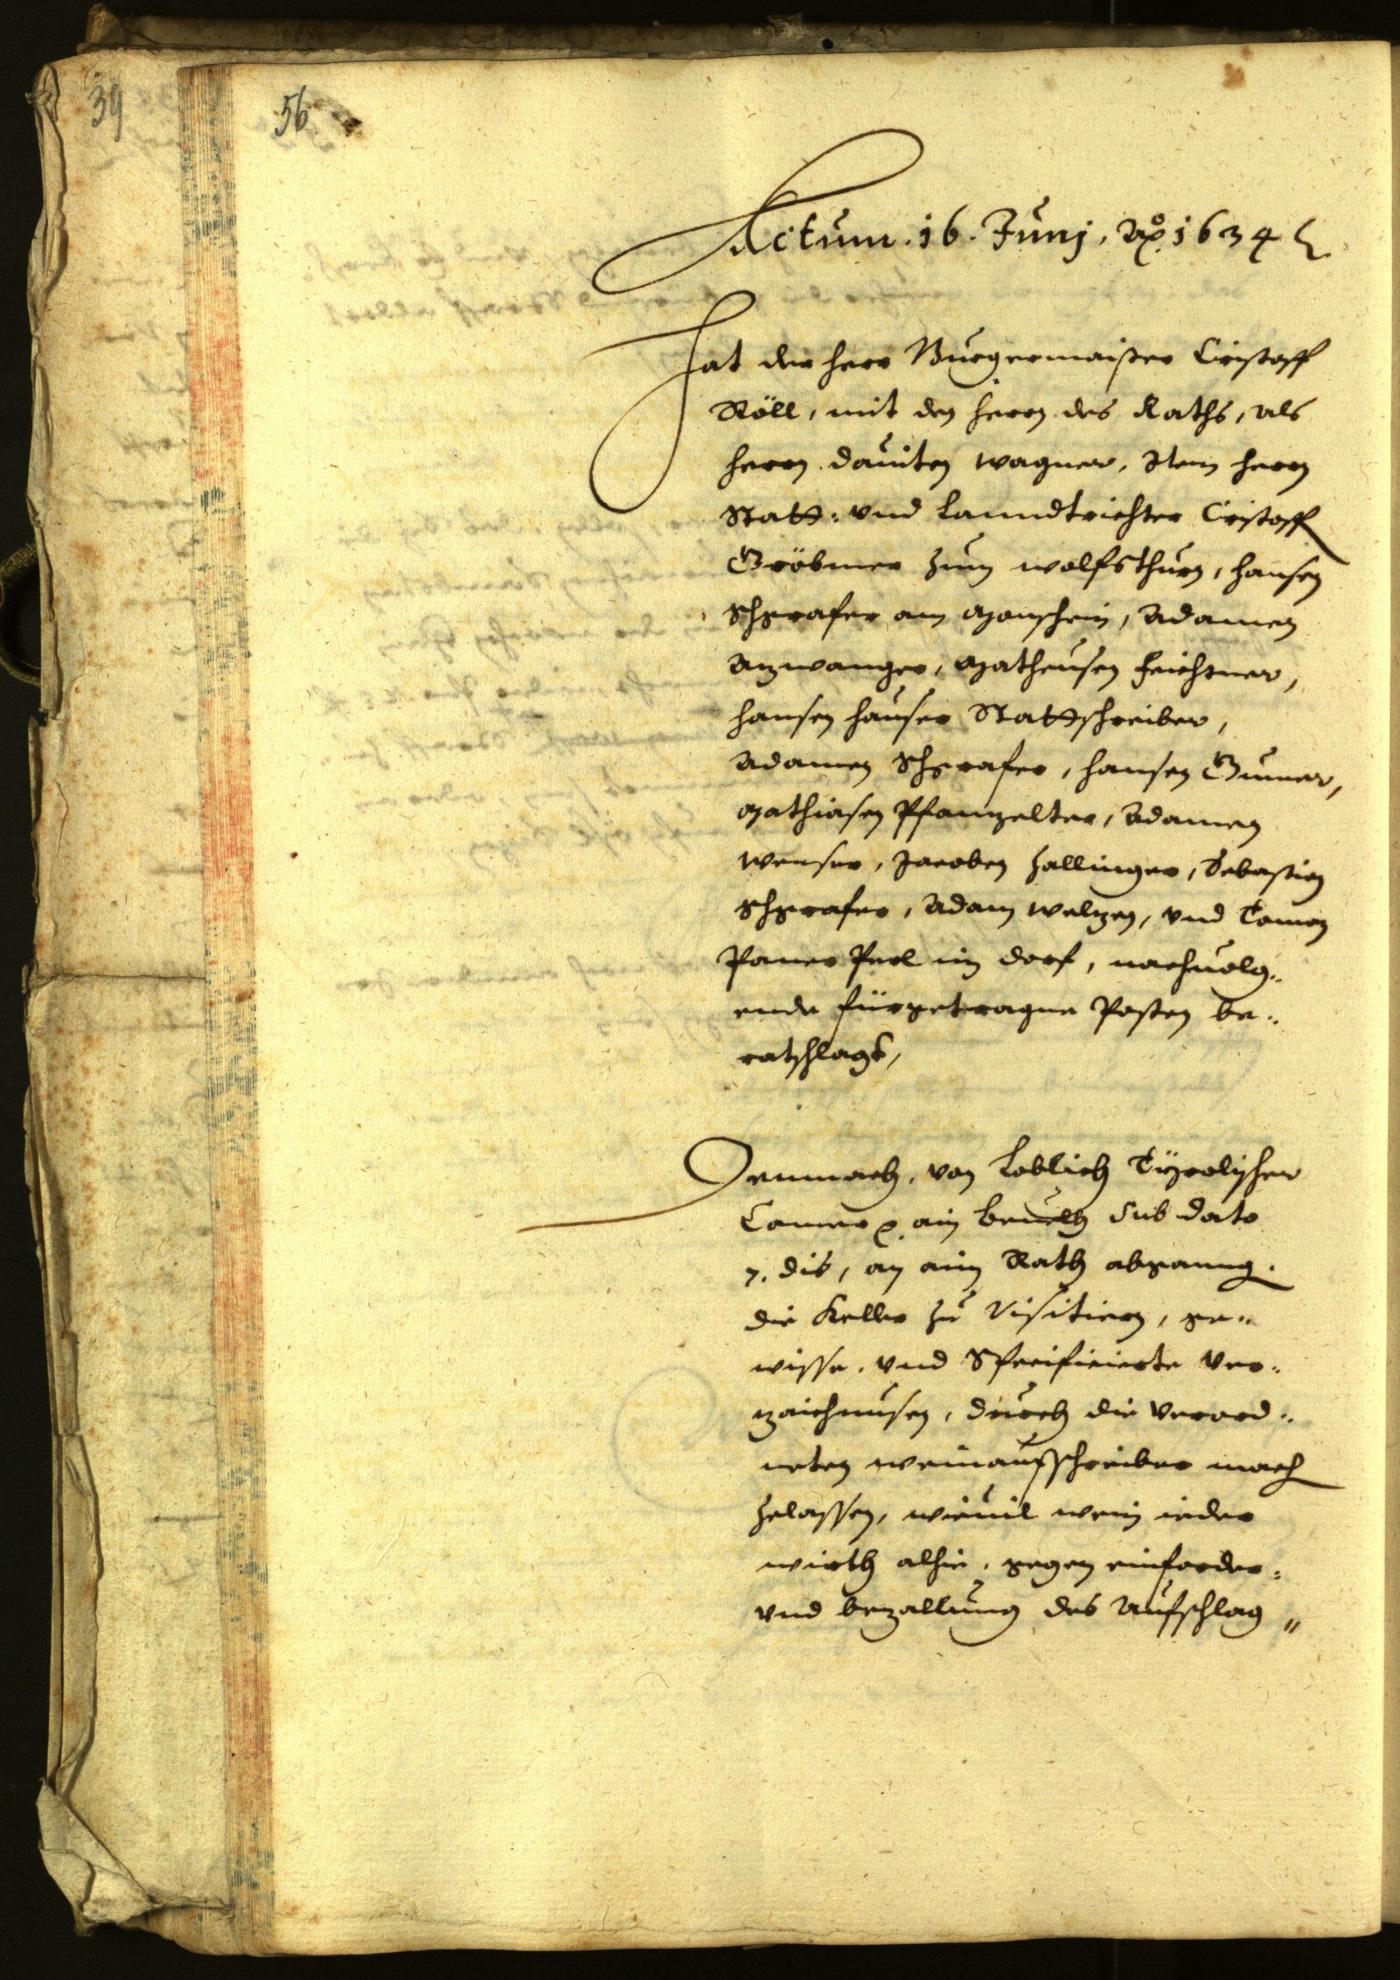 39
56
Actum. 16. Junj. Aõ. 1634
Hat der herr Burgermaister Cristoff
Röll, mit den herrn des Raths, als
herrn Dauiten Wagner, Item herrn
Statt: vnd Lanndtrichter Cristoff
Gröbmer zum Wolfsthurn, Hansen
Schgrafer am Monschein, Adamen
Anzwanger, Matheusen Feichtner,
Hansen Hauser Stattschreiber,
Adamen Schgrafer, Hansen Gumer,
Mathiasen Pfanzelter, Adamen
Wenser, Jacoben Zallinger, Sebastien
Schgrafer, Adam Welzen, vnd
Paner Perl im Dorf, nachuolg:
ende fürgetragne Posten be:
ratschlagt,
Demnach, von Loblich Tyrolischer
Camer ain beuelch sub dato
7. dis, an ain Rath abganng.
die Keller zu Visitiern, ge:
wisse, vnd Specificierte Ver:
zaichnusen, durch die verord:
neten weinaufschreiber mach
zelassen, wieuil wein ieder
wirth alhie, gegen einforder:
vnd bezallung des Aufschlag